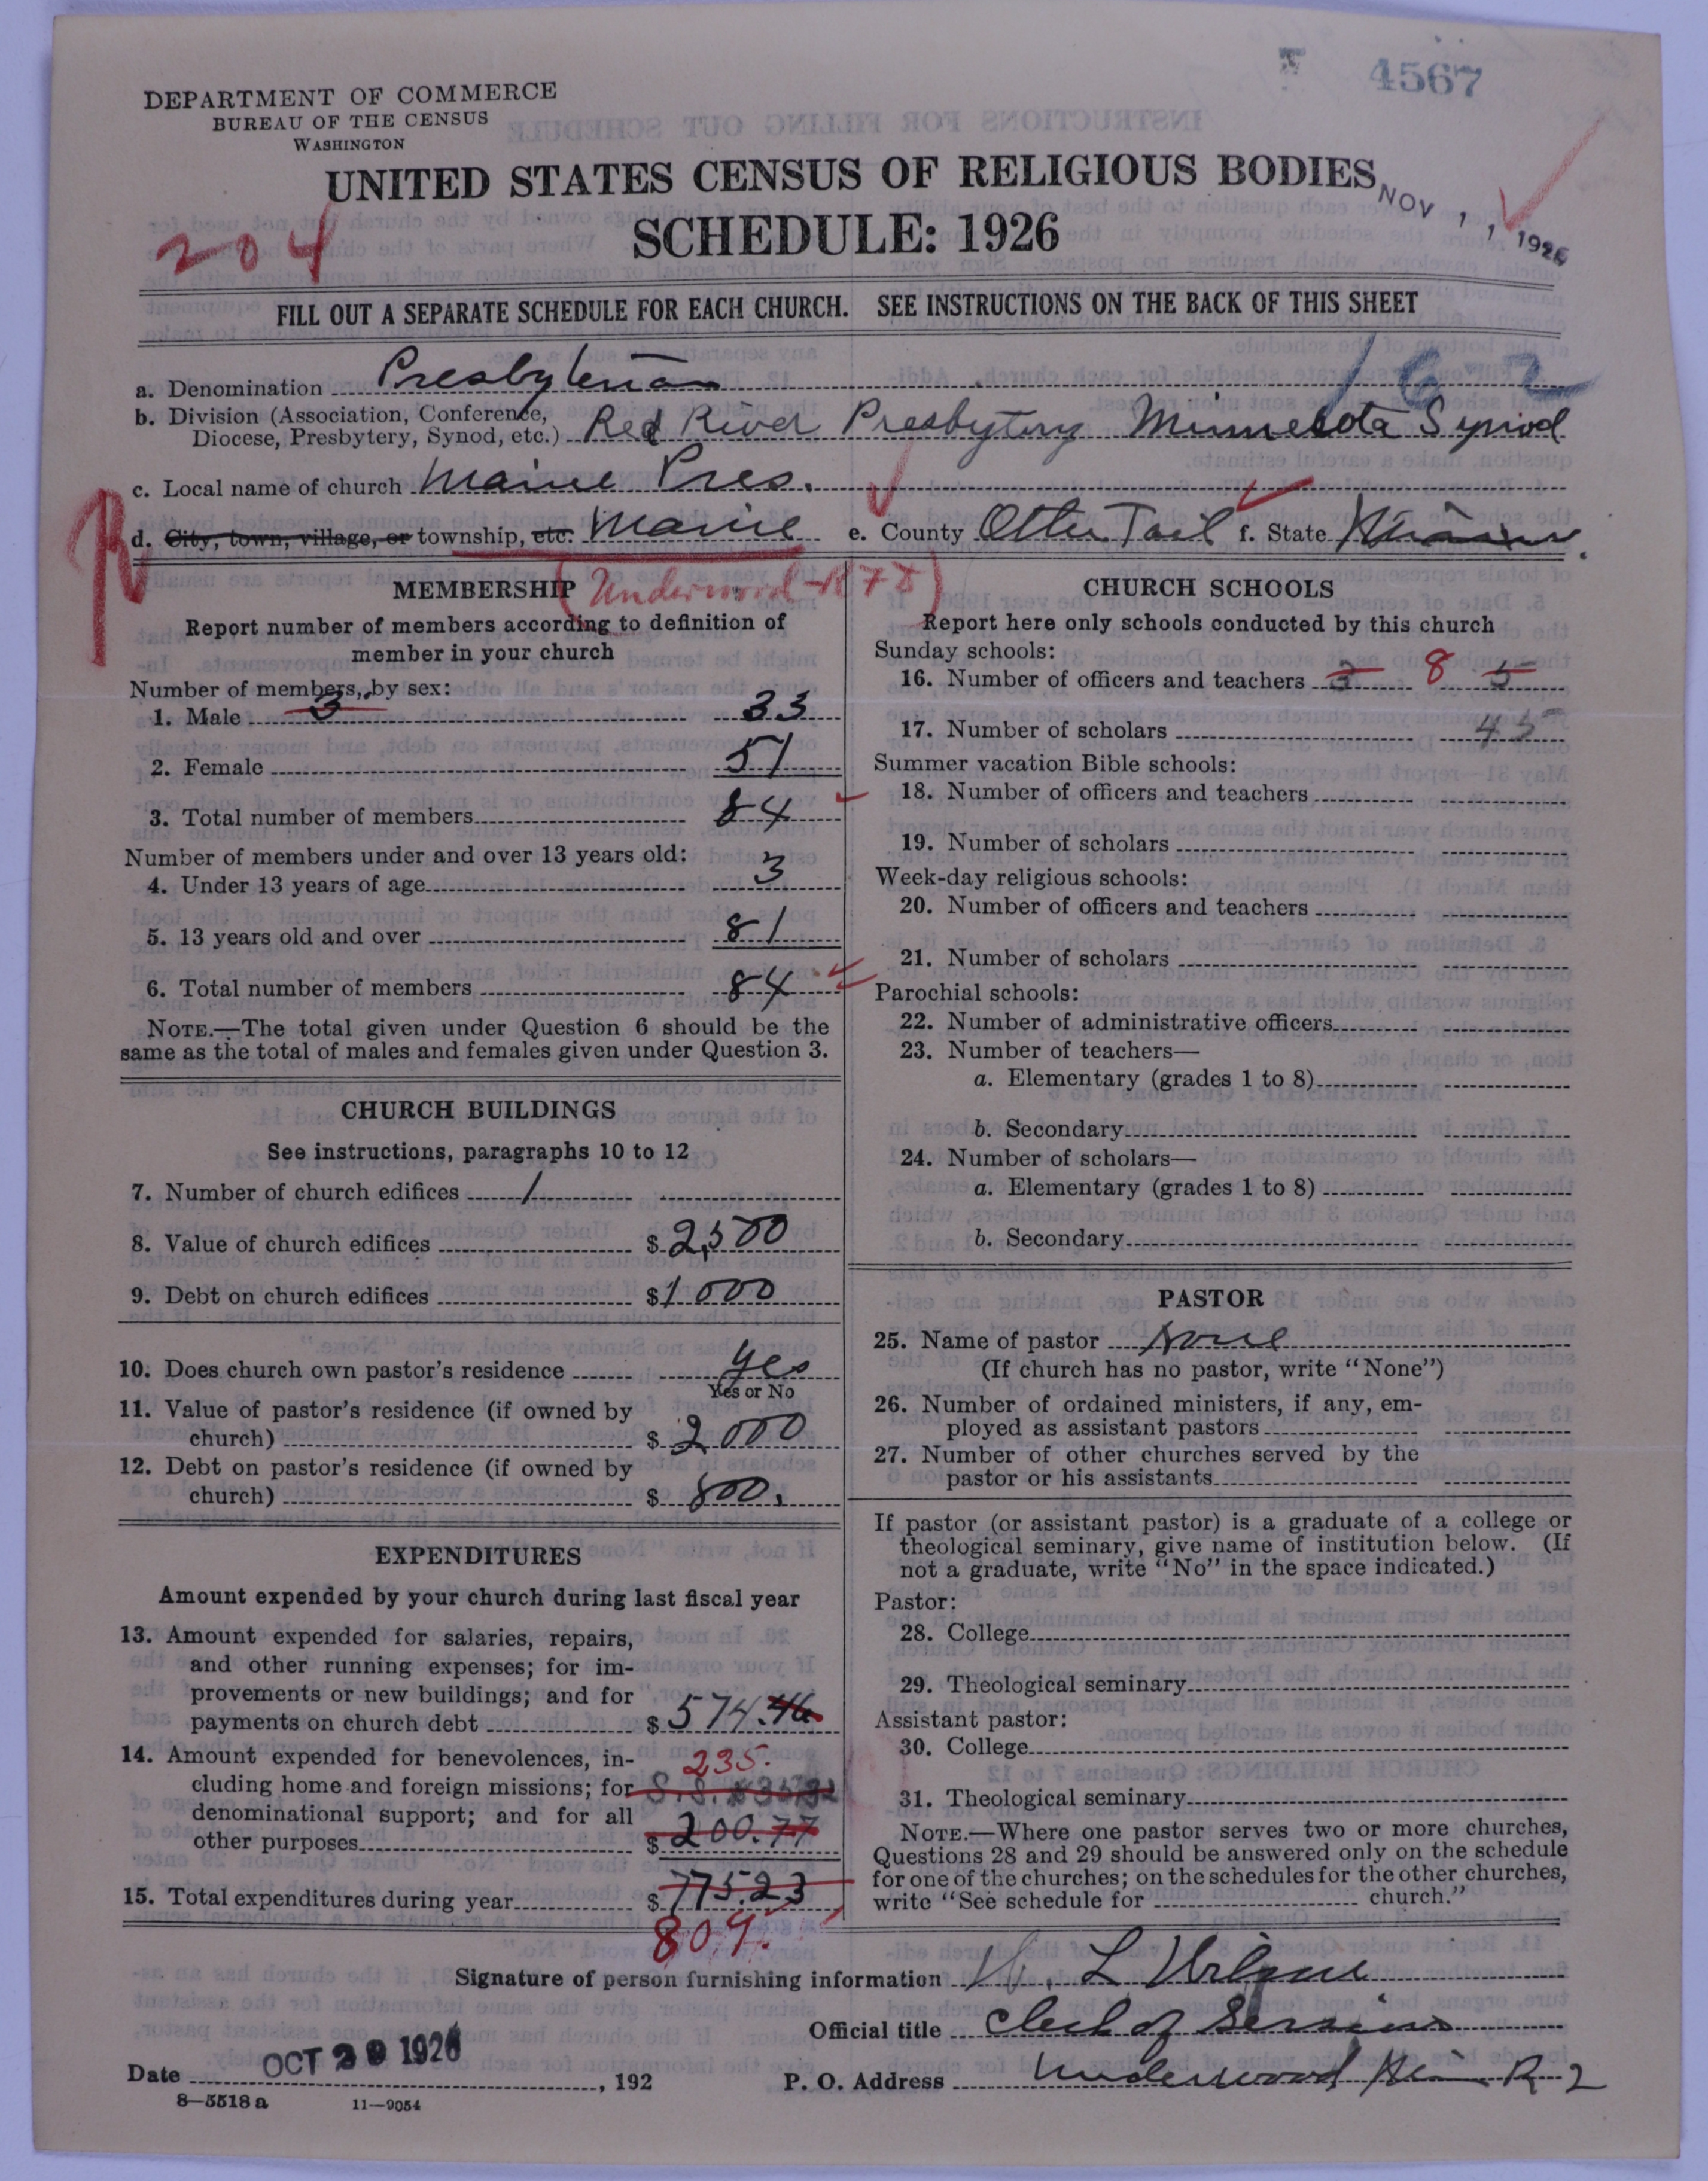 4567
DEPARTMENT OF COMMERCE
BUREAU OF THE CENSUS
WASHINGTON
UNITED STATES CENSUS OF RELIGIOUS BODIES
SCHEDULE: 1926
NOV 1 1 1926
204
FILL OUT A SEPARATE SCHEDULE FOR EACH CHURCH. SEE INSTRUCTIONS ON THE BACK OF THIS SHEET
162
a. Denomination Presbyterian
b. Division (Association, Conference,
Diocese, Presbytery, Synod, etc.) Red River Presbytery Minnesota Synod
c. Local name of church Maine Pres.
R
d. City, town, village, or township, etc. Maine e. County Otter Tail f. State Minn.
(Underwood-R 78)
MEMBERSHIP
Report number of members according to definition of
member in your church
Number of members, by sex:
1. Male 3 33
2. Female 51
3. Total number of members 84
Number of members under and over 13 years old:
4. Under 13 years of age 3
5. 13 years old and over 81
6. Total number of members 84
NOTE.—The total given under Question 6 should be the
same as the total of males and females given under Question 3.
CHURCH BUILDINGS
See instructions, paragraphs 10 to 12
7. Number of church edifices 1
8. Value of church edifices $ 2,500
9. Debt on church edifices $ 1000
10. Does church own pastor's residence yes
Yes or No
11. Value of pastor's residence (if owned by
church) $ 2000
12. Debt on pastor's residence (if owned by
church) $ 800.
EXPENDITURES
Amount expended by your church during last fiscal year
13. Amount expended for salaries, repairs,
and other running expenses; for im-
provements or new buildings; and for
payments on church debt $ 574.46
14. Amount expended for benevolences, in- 235.
cluding home and foreign missions; for S.S.
denominational support; and for all
other purposes $ 200.77
15. Total expenditures during year $ 775.23
809.
CHURCH SCHOOLS
Report here only schools conducted by this church
Sunday schools:
16. Number of officers and teachers 3 8 5
17. Number of scholars 45
Summer vacation Bible schools:
18. Number of officers and teachers
19. Number of scholars
Week-day religious schools:
20. Number of officers and teachers
21. Number of scholars
Parochial schools:
22. Number of administrative officers
23. Number of teachers—
a. Elementary (grades 1 to 8)
b. Secondary
24. Number of scholars—
a. Elementary (grades 1 to 8)
b. Secondary
PASTOR
25. Name of pastor None
(If church has no pastor, write "None")
26. Number of ordained ministers, if any, em-
ployed as assistant pastors
27. Number of other churches served by the
pastor or his assistants
If pastor (or assistant pastor) is a graduate of a college or
theological seminary, give name of institution below. (If
not a graduate, write "No" in the space indicated.)
Pastor:
28. College
29. Theological seminary
Assistant pastor:
30. College
31. Theological seminary
NOTE.—Where one pastor serves two or more churches,
Questions 28 and 29 should be answered only on the schedule
for one of the churches; on the schedules for the other churches,
write "See schedule for church."
Signature of person furnishing information L
Official title Clerk of Sessions
Date OCT 29 1926, 192
P. O. Address Underwood Minn R 2
8—5518 a 11—9054